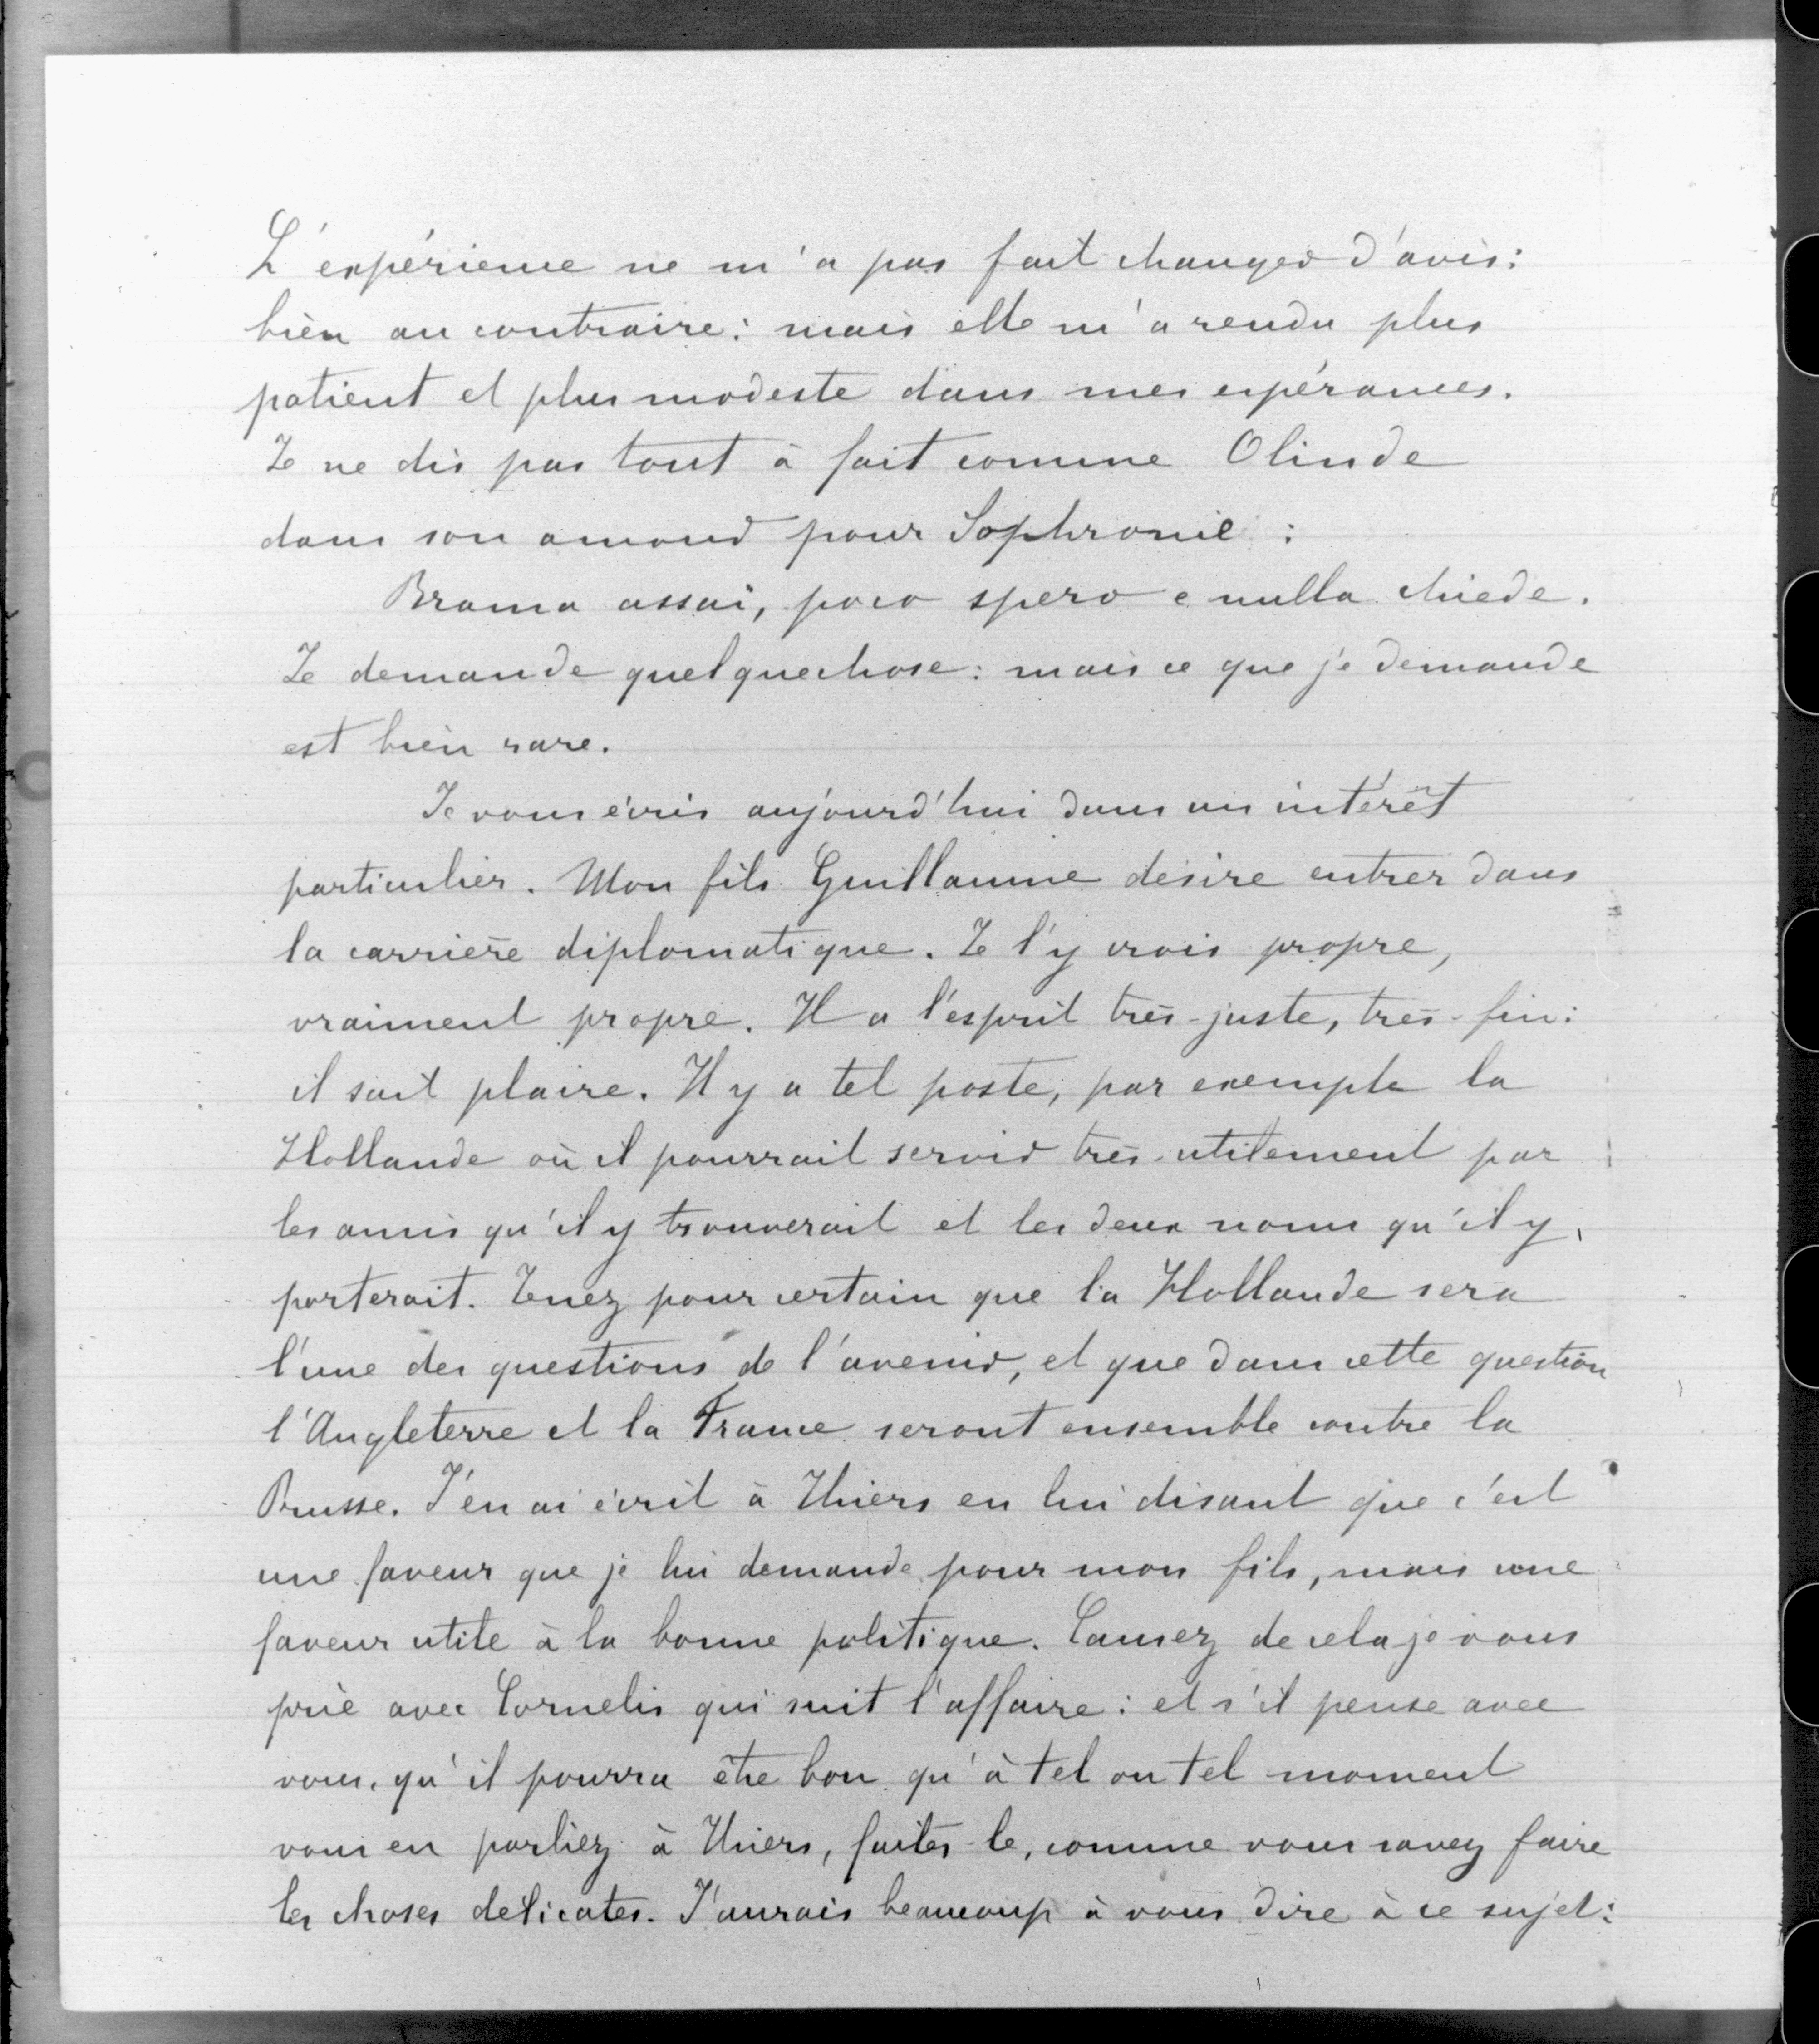 L'expérience ne m'a pas fait changer d'avis:
bien au contraire: mais elle m'a rendu plus
patient et plus modeste dans mes espérances.
Je ne dis pas tout à fait comme Olinde
dans son amour pour Sophronie :
Brama assai, poco spero e nulla chiede.
Je demande quelquechose: mais ce que je demande
est bien rare.
Je vous écris aujourd'hui dans un intérêt
particulier. Mon fils Guillaume désire entrer dans
la carrière diplomatique. Je l'y crois propre,
vraiment propre. Il a l'esprit très-juste, très-fin:
il sait plaire. Il y a tel poste, par exemple la
Hollande où il pourrait servir très-utilement par
les amis qu'il y trouverait et les deux noms qu'il y
porterait. Tenez pour certain que la Hollande sera
l'une des questions de l'avenir, et que dans cette question
l'Angleterre et la France seront ensemble contre la
Prusse. J'en ai écrit à Thiers en lui disant que c'est
une faveur que je lui demande pour mon fils, mais une
faveur utile à la bonne politique. Causez de cela je vous
prie avec Cornelis qui suit l'affaire: et s'il pense avec
vous, qu'il pourra être bon qu'à tel ou tel moment
vous en parliez à Thiers, faites-le, comme vous savez faire
les choses délicates. J'aurais beaucoup à vous dire à ce sujet: